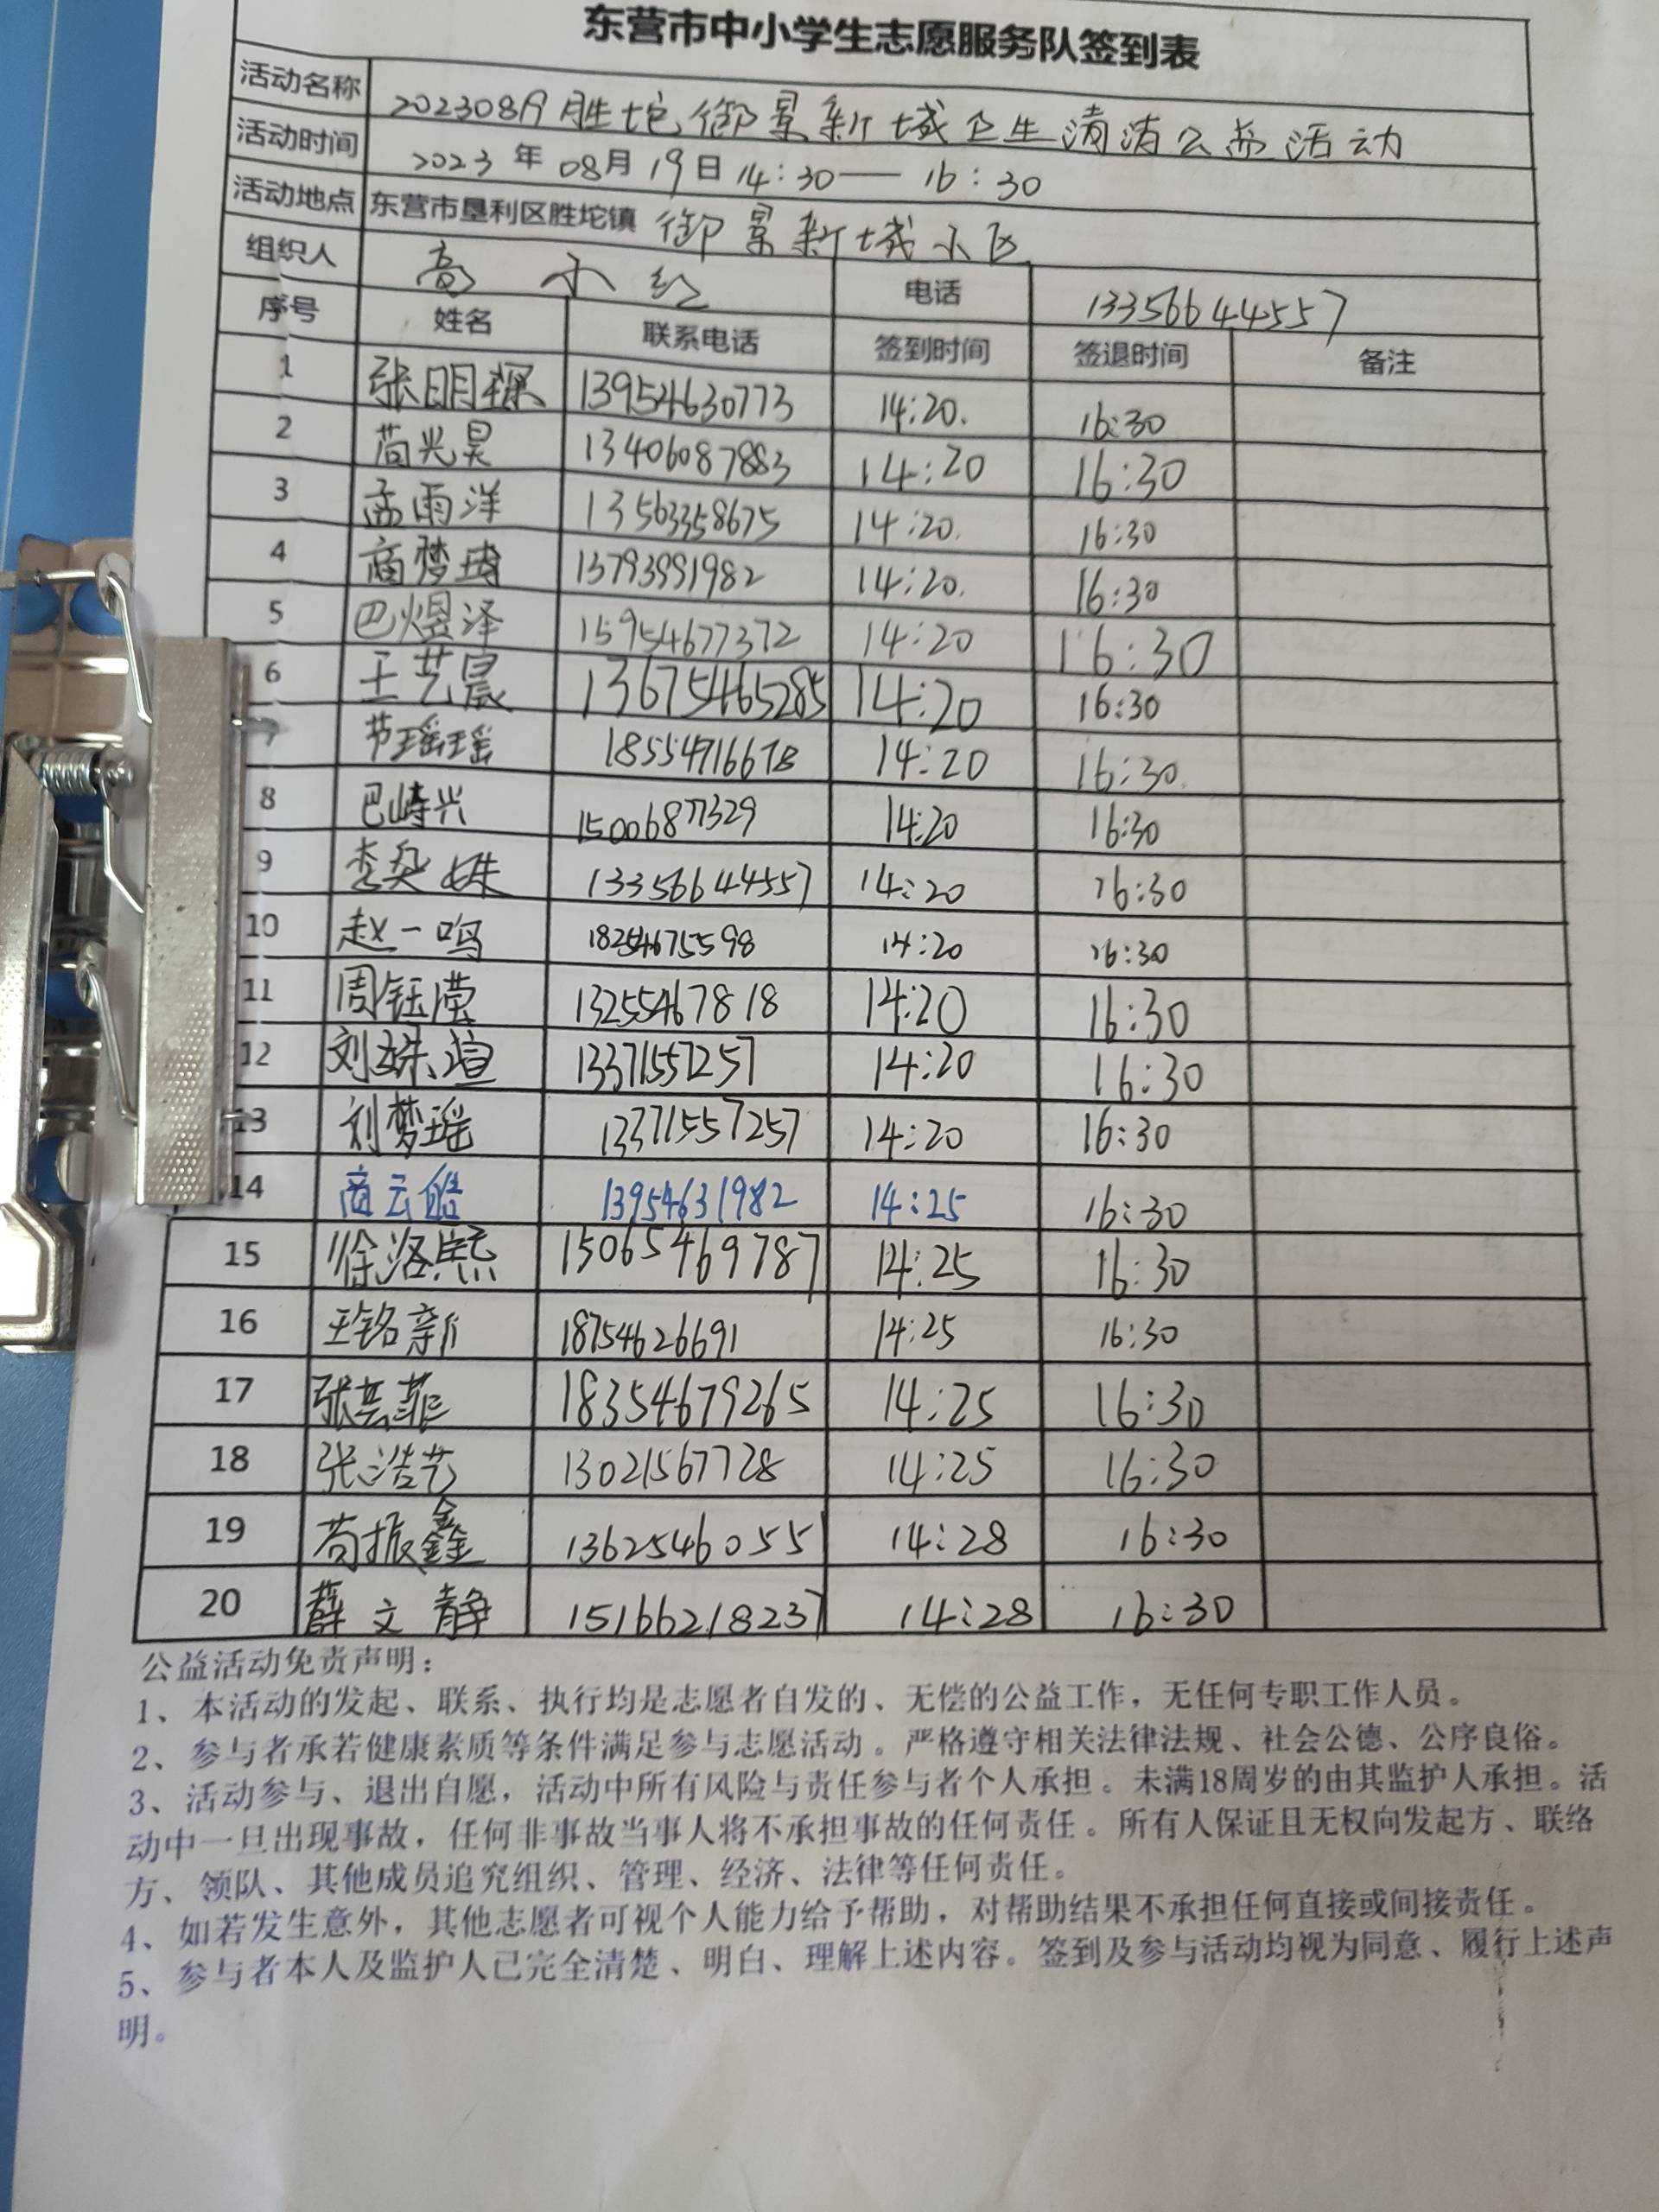 东营市中小学生志愿服务队签到表
活动名称 202308月胜坨御景新城卫生清洁公益活动
活动时间 2023年08月19日14:30——16:30
活动地点 东营市垦利区胜坨镇 御景新城小区
组织人 高小红 电话 13356644557
序号 姓名 联系电话 签到时间 签退时间 备注
1 张明琛 13954630773 14:20. 16:30
2 苘光昊 13406087883 14:20 16:30
3 孟雨洋 13563358675 14:20. 16:30
4 商梦琦 13793991982 14:20. 16:30
5 巴煜泽 15954677372 14:20 16:30
6 王艺晨 13675465285 14:20 16:30
7 节瑶瑶 18554716678 14:20 16:30.
8 巴崎兴 15006877329 14:20 16:30
9 李奕姝 13356644557 14:20 16:30
10 赵一鸣 18254675598 14:20 16:30
11 周钰滢 13255467818 14:20 16:30
12 刘姝煊 13371557257 14:20 16:30
13 刘梦瑶 13371557257 14:20 16:30
14 商云皓 13954631982 14:25 16:30
15 徐洛熙 15065469787 14:25 16:30
16 王铭新 18754626691 14:25 16:30
17 张芸菲 18354679265 14:25 16:30
18 张浩艺 13021567728 14:25 16:30
19 苘振鑫 13625460551 14:28 16:30
20 薛文静 15166218237 14:28 16:30
公益活动免责声明：
1、本活动的发起、联系、执行均是志愿者自发的、无偿的公益工作，无任何专职工作人员。
2、参与者承若健康素质等条件满足参与志愿活动。严格遵守相关法律法规、社会公德、公序良俗。
3、活动参与、退出自愿，活动中所有风险与责任参与者个人承担。未满18周岁的由其监护人承担。活
动中一旦出现事故，任何非事故当事人将不承担事故的任何责任。所有人保证且无权向发起方、联络
方、领队、其他成员追究组织、管理、经济、法律等任何责任。
4、如若发生意外，其他志愿者可视个人能力给予帮助，对帮助结果不承担任何直接或间接责任。
5、参与者本人及监护人已完全清楚、明白、理解上述内容。签到及参与活动均视为同意、履行上述声
明。